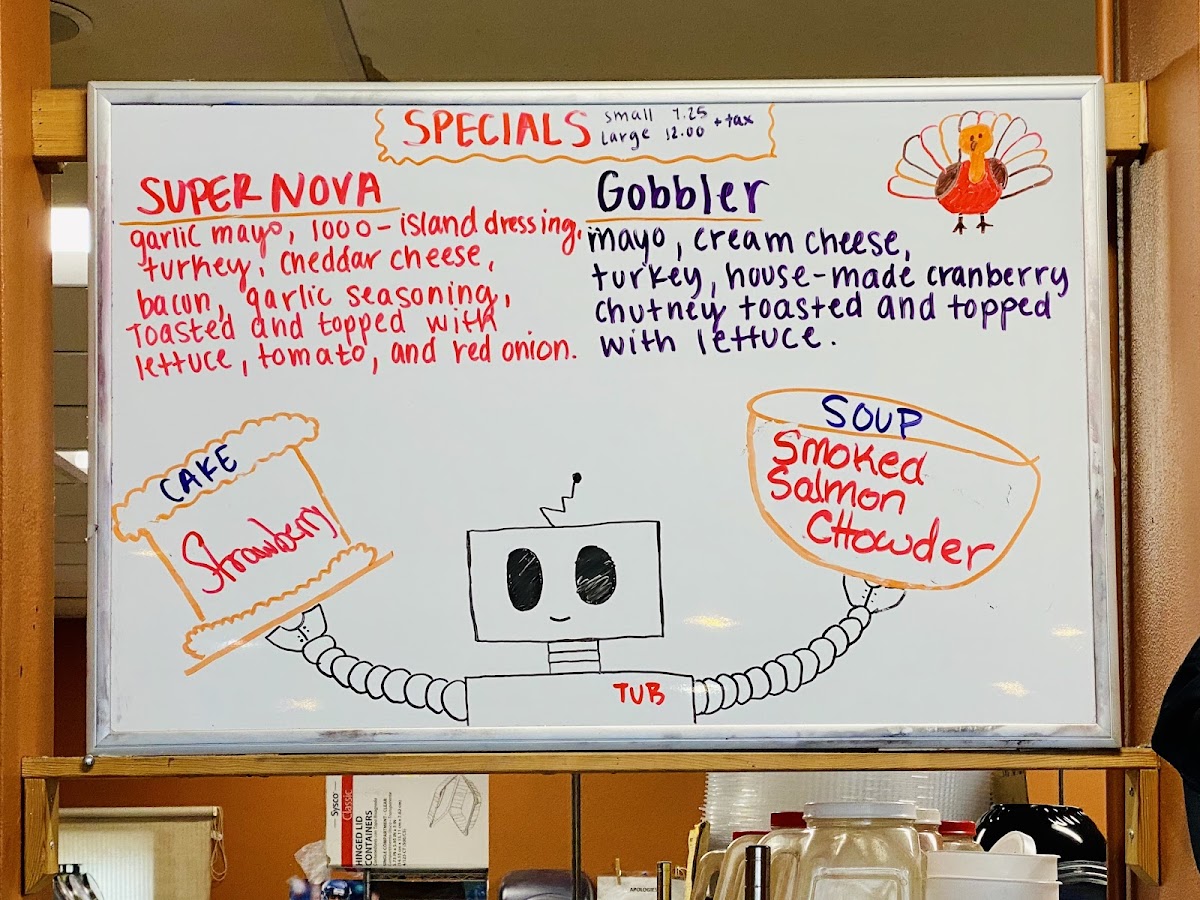 SPECIALS
small 7.25
large 12.00
+ tax
SUPER NOVA
garlic mayo, 1000-island dressing,
turkey, cheddar cheese,
bacon, garlic seasoning,
Toasted and topped with
lettuce, tomato, and red onion.
Gobbler
mayo, cream cheese,
turkey, house-made cranberry
chutney toasted and topped
with lettuce.
CAKE
Strawberry
SOUP
Smoked
Salmon
CHowder
TUB
Sysco
Classic
HINGED LID
CONTAINERS
APOLOGIES